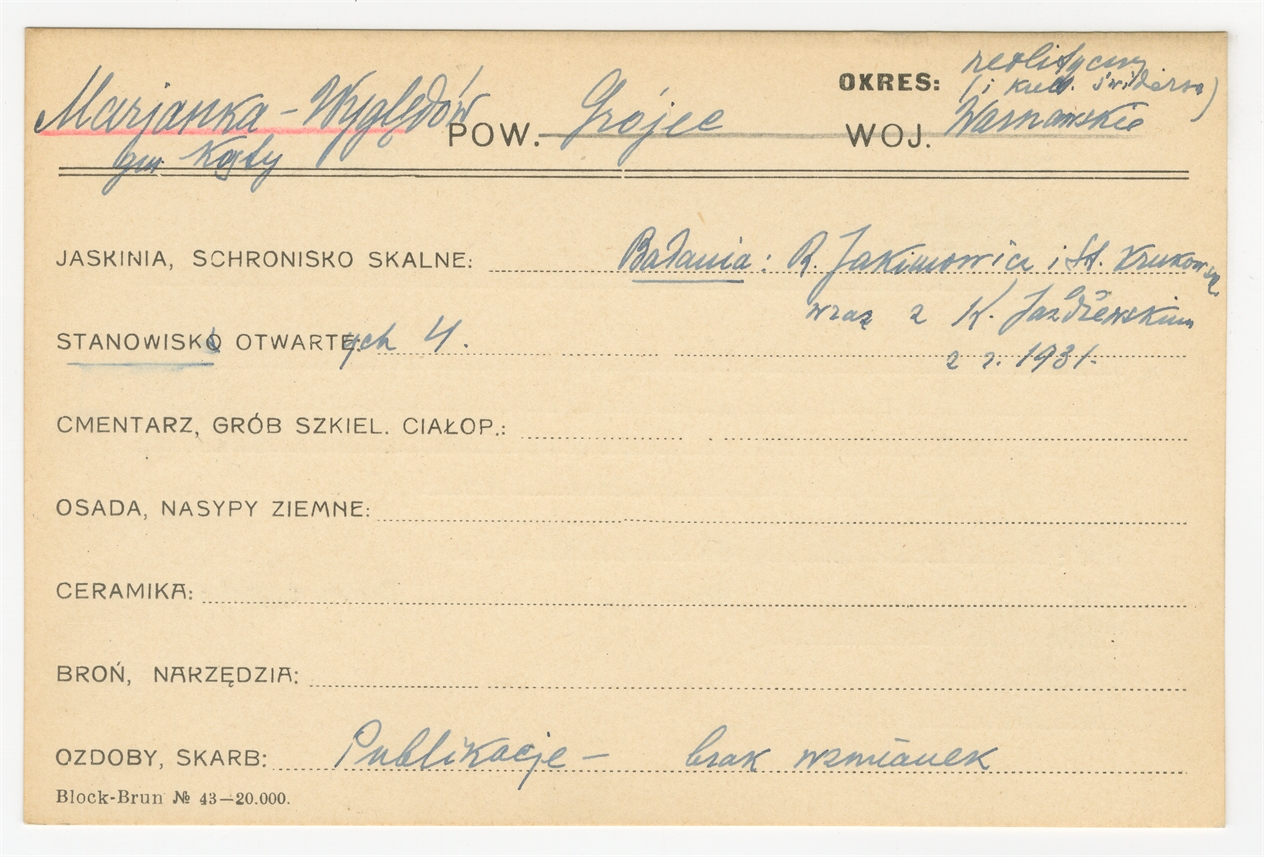 OKRES: neolityczny
(i kult. świdersk)
Marjanka - Wyględów POW. Grójec WOJ. Warszawskie
gm Kąty
JASKINIA, SCHRONISKO SKALNE: Badania: R. Jakimowicz i St. Krukowski
wraz z K. Jażdżewskim
STANOWISKO OTWARTE: ych 4.
z r. 1931.
CMENTARZ, GRÓB SZKIEL. CIAŁOP.:
OSADA, NASYPY ZIEMNE:
CERAMIKA:
BROŃ, NARZĘDZIA:
OZDOBY, SKARB: Publikacje – brak wzmianek
Block-Brun № 43—20.000.